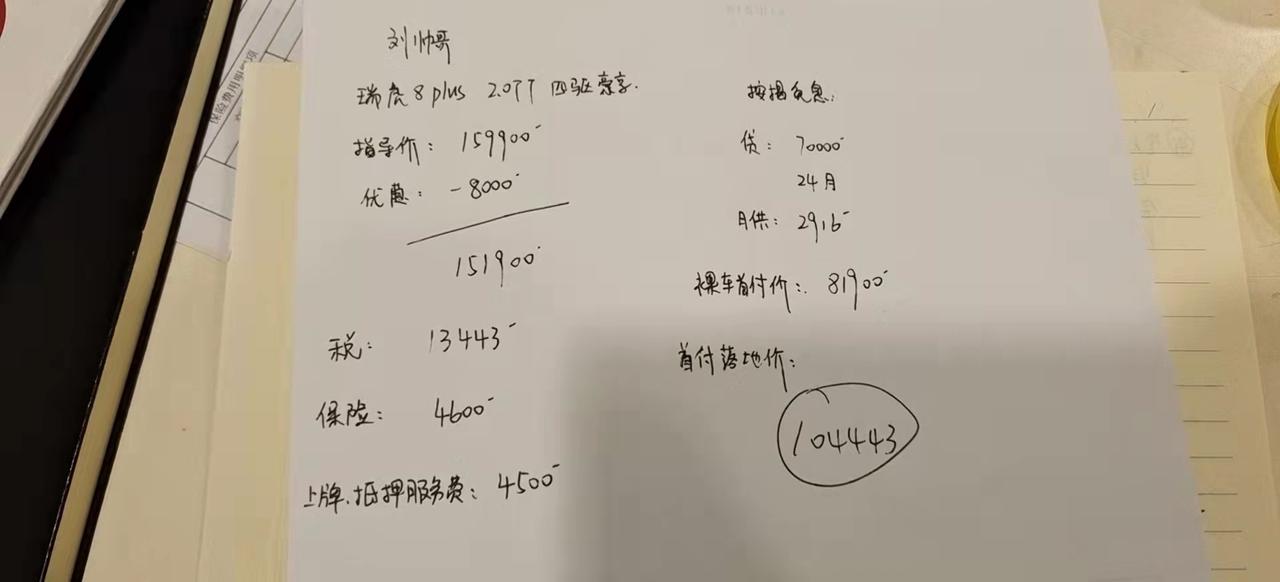 刘帅哥
瑞虎8 plus 2.0TT 四驱豪享.
指导价: 159900
优惠: -8000
151900
税: 13443
保险: 4600
上牌.抵押服务费: 4500
按揭免息:
贷: 70000
24月
月供: 2916
裸车首付价: 81900
首付落地价:
104443
保险费用明细项